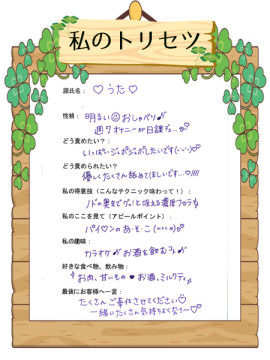 私のトリセツ
源氏名： ♡うた♡
性格： 明るい☺おしゃべり♪
週7オナニーが日課デス…♡
どう責めたい？：
いっぱいジュポジュポしたいです
どう責められたい？
優しくたくさん舐めてほしいです…♡
私の得意技（こんなテクニック味わって！）：
ノドの奥までグイっと咥える濃厚フェラ
私のここを見て（アピールポイント）：
パイ♡ンのあ・そ・こ
私の趣味：
カラオケ♪ お酒を飲むコト
好きな食べ物、飲み物：
お肉、甘いもの♥お酒、ミルクティー
最後にお客様へ一言：
たくさんご奉仕させてください♡
一緒にたくさん気持ちよくなろっ♡